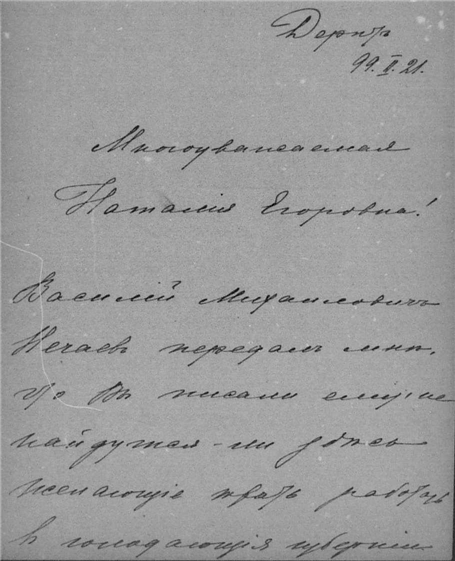 Дерптъ
99. II. 21.
Многоуважаемая
Наталія Егоровна!
Василій Михаиловичъ
Нечаевъ передалъ мнѣ,
что Вы писали ему, не
найдутся-ли здѣсь
желающіе ѣхать работать
въ голодающія губерніи